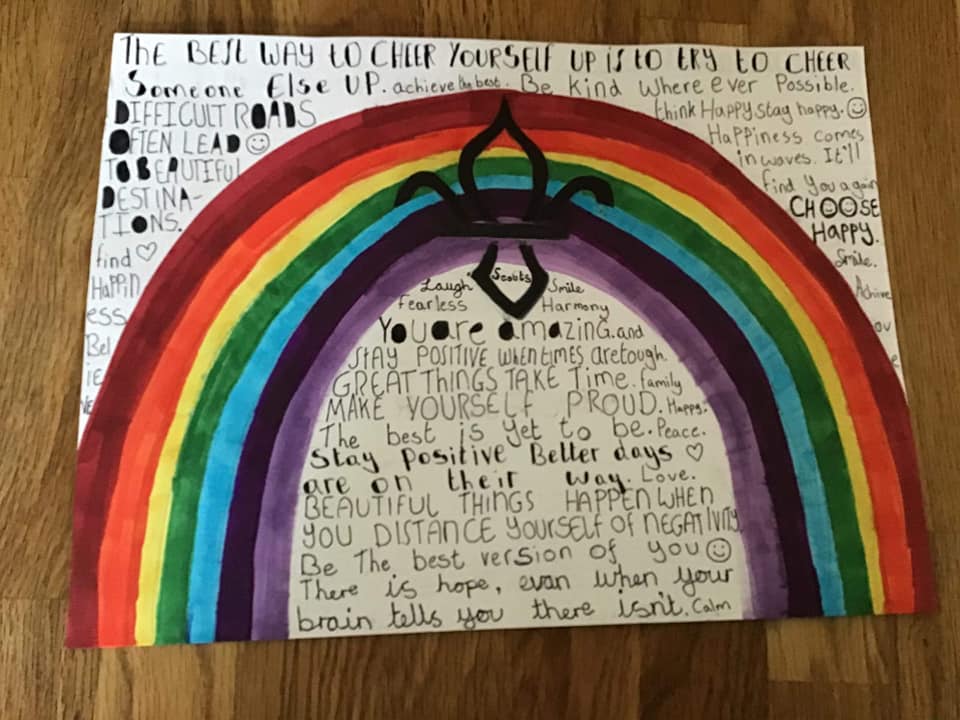 THE BEST WAY TO CHEER YOURSELF UP iS to try to CHEER
Someone Else UP. achieve the best. Be Kind where ever Possible.
DIFFICULT ROADS
OFTEN LEAD
TO BEAUTIFUL
DESTINA-
TIONS.
find
HaPPin
ess.
Bel
ie
ve
think Happy stay happy.
HaPPiness comes
in waves. It'll
find you again
CHOOSE
HAPPY.
Smile.
Achive
Scouts
Laugh Smile
Fearless Harmony
You are amazing. and
STAY POSITIVE when times are tough.
GREAT THINGS TAKE Time. family
MAKE YOURSELF PROUD. Happy.
The best is yet to be. Peace.
Stay Positive Better days
are on their way. Love.
BEAUTIFUL THINGS HAPPEN WHEN
YOU DISTANCE YOURSELF OF NEGATIVITY
Be The best version of you
There is hope, evan when your
brain tells you there isn't. Calm